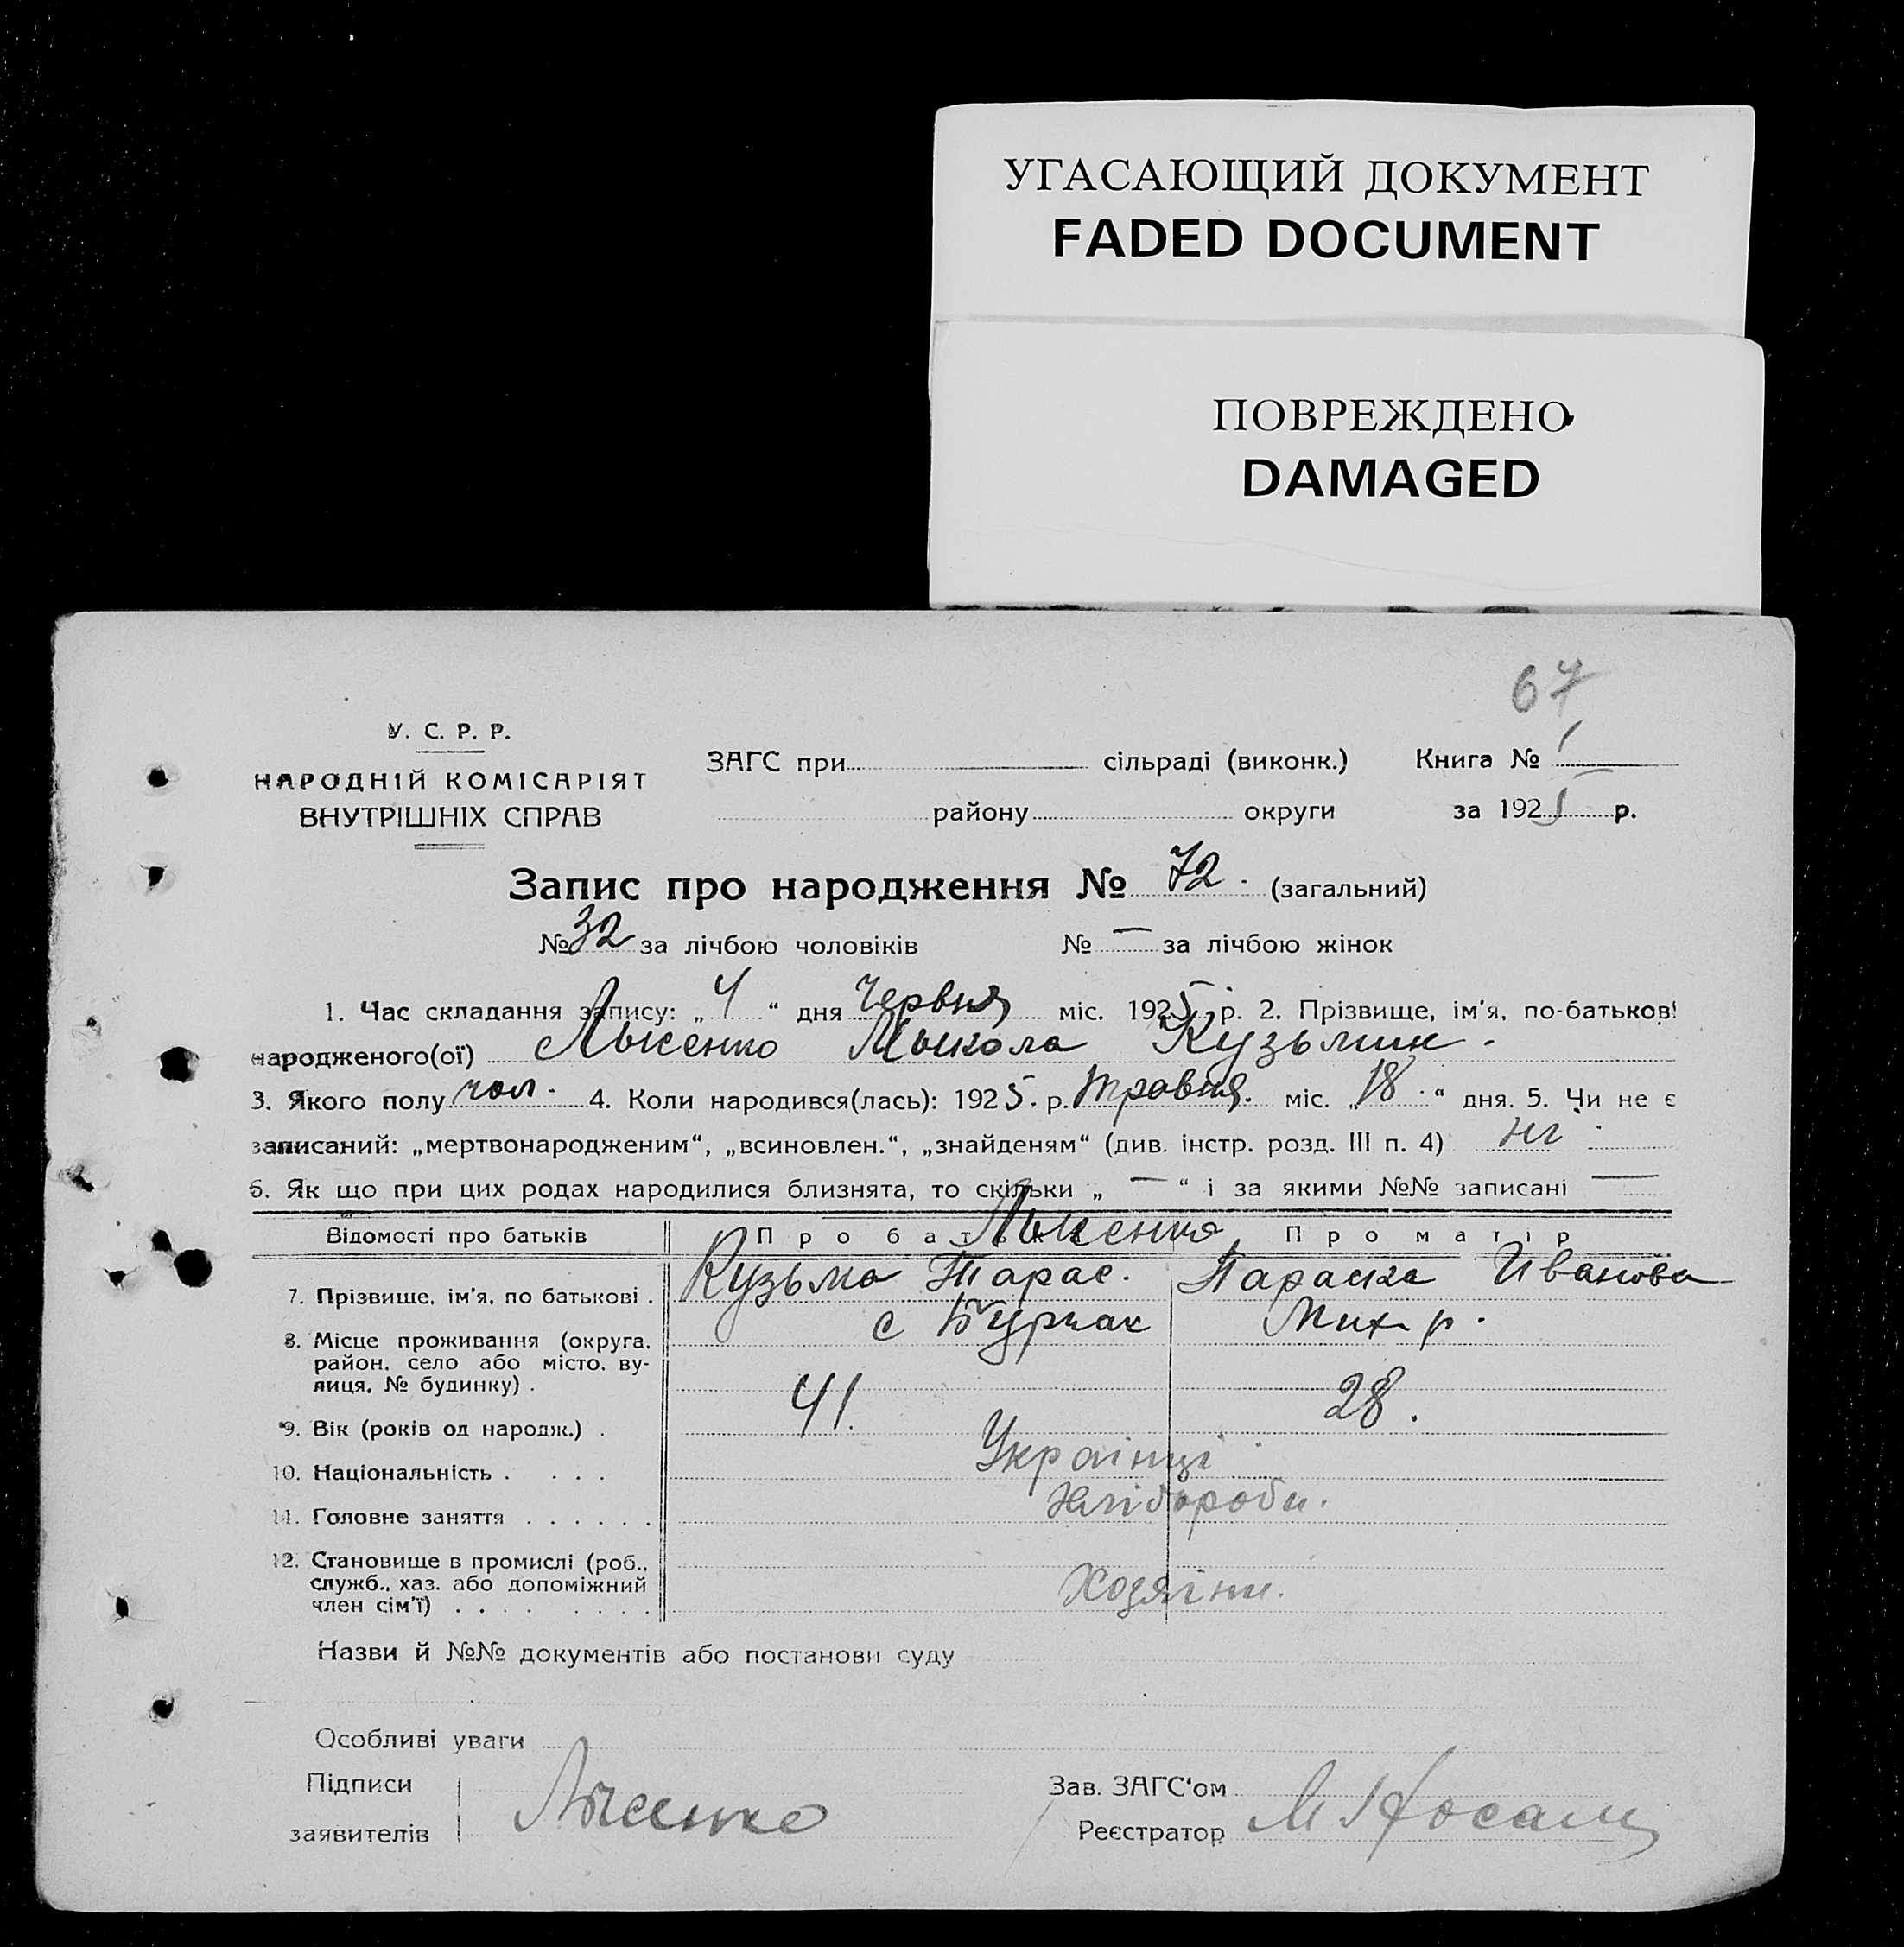 УГАСАЮЩИЙ ДОКУМЕНТ
FADED DOCUMENT
ПОВРЕЖДЕНО
DAMAGED
67
У. С. Р. Р.
НАРОДНІЙ КОМІСАРІЯТ
ВНУТРІШНІХ СПРАВ
ЗАГС при сільраді (виконк.) Книга № 1
району округи за 1925 р.
Запис про народження № 72. (загальний)
№ 32 за лічбою чоловіків № — за лічбою жінок
1. Час складання запису: „4“ дня Червня міс. 1925 р. 2. Прізвище, ім'я, по-батькові
народженого(ої) Лысенко Мыкола Кузьмик.
3. Якого полу чол. 4. Коли народився(лась): 1925. р. травня. міс. „18.“ дня. 5. Чи не є
записаний: „мертвонародженим“, „всиновлен.“, „знайденям“ (див. інстр. розд. III п. 4) ні.
6. Як що при цих родах народилися близнята, то скільки „—“ і за якими №№ записані —
Відомості про батьків Про батька Про матір
Лысенко
7. Прізвище, ім'я, по батькові . Кузьма Тарас. Параска Иванова
8. Місце проживання (округа, район, село або місто, вулиця, № будинку) . с Бурчак Мих. р.
9. Вік (років од народж.) . 41. 28.
10. Національність . . . . Українці.
11. Головне заняття . . . . . . Хлібороби.
12. Становище в промислі (роб., служб., хаз. або допоміжний член сім'ї) . . . . . . . . Хозяїни.
Назви й №№ документів або постанови суду
Особливі уваги
Підписи
заявителів Лысенко
Зав. ЗАГС'ом
Реєстратор